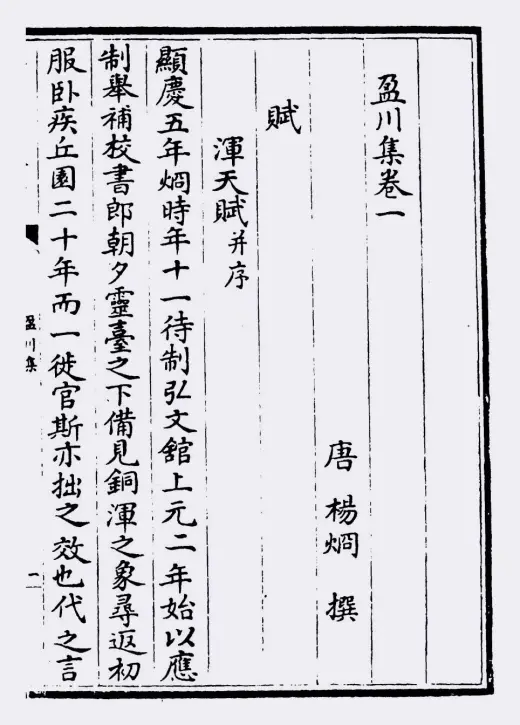 盈川集卷一
唐 楊烱 撰
賦
渾天賦并序
顯慶五年烱時年十一待制弘文舘上元二年始以應
制舉補校書郎朝夕靈臺之下備見銅渾之象尋返初
服卧疾丘園二十年而一徙官斯亦拙之效也代之言
盈川集
一